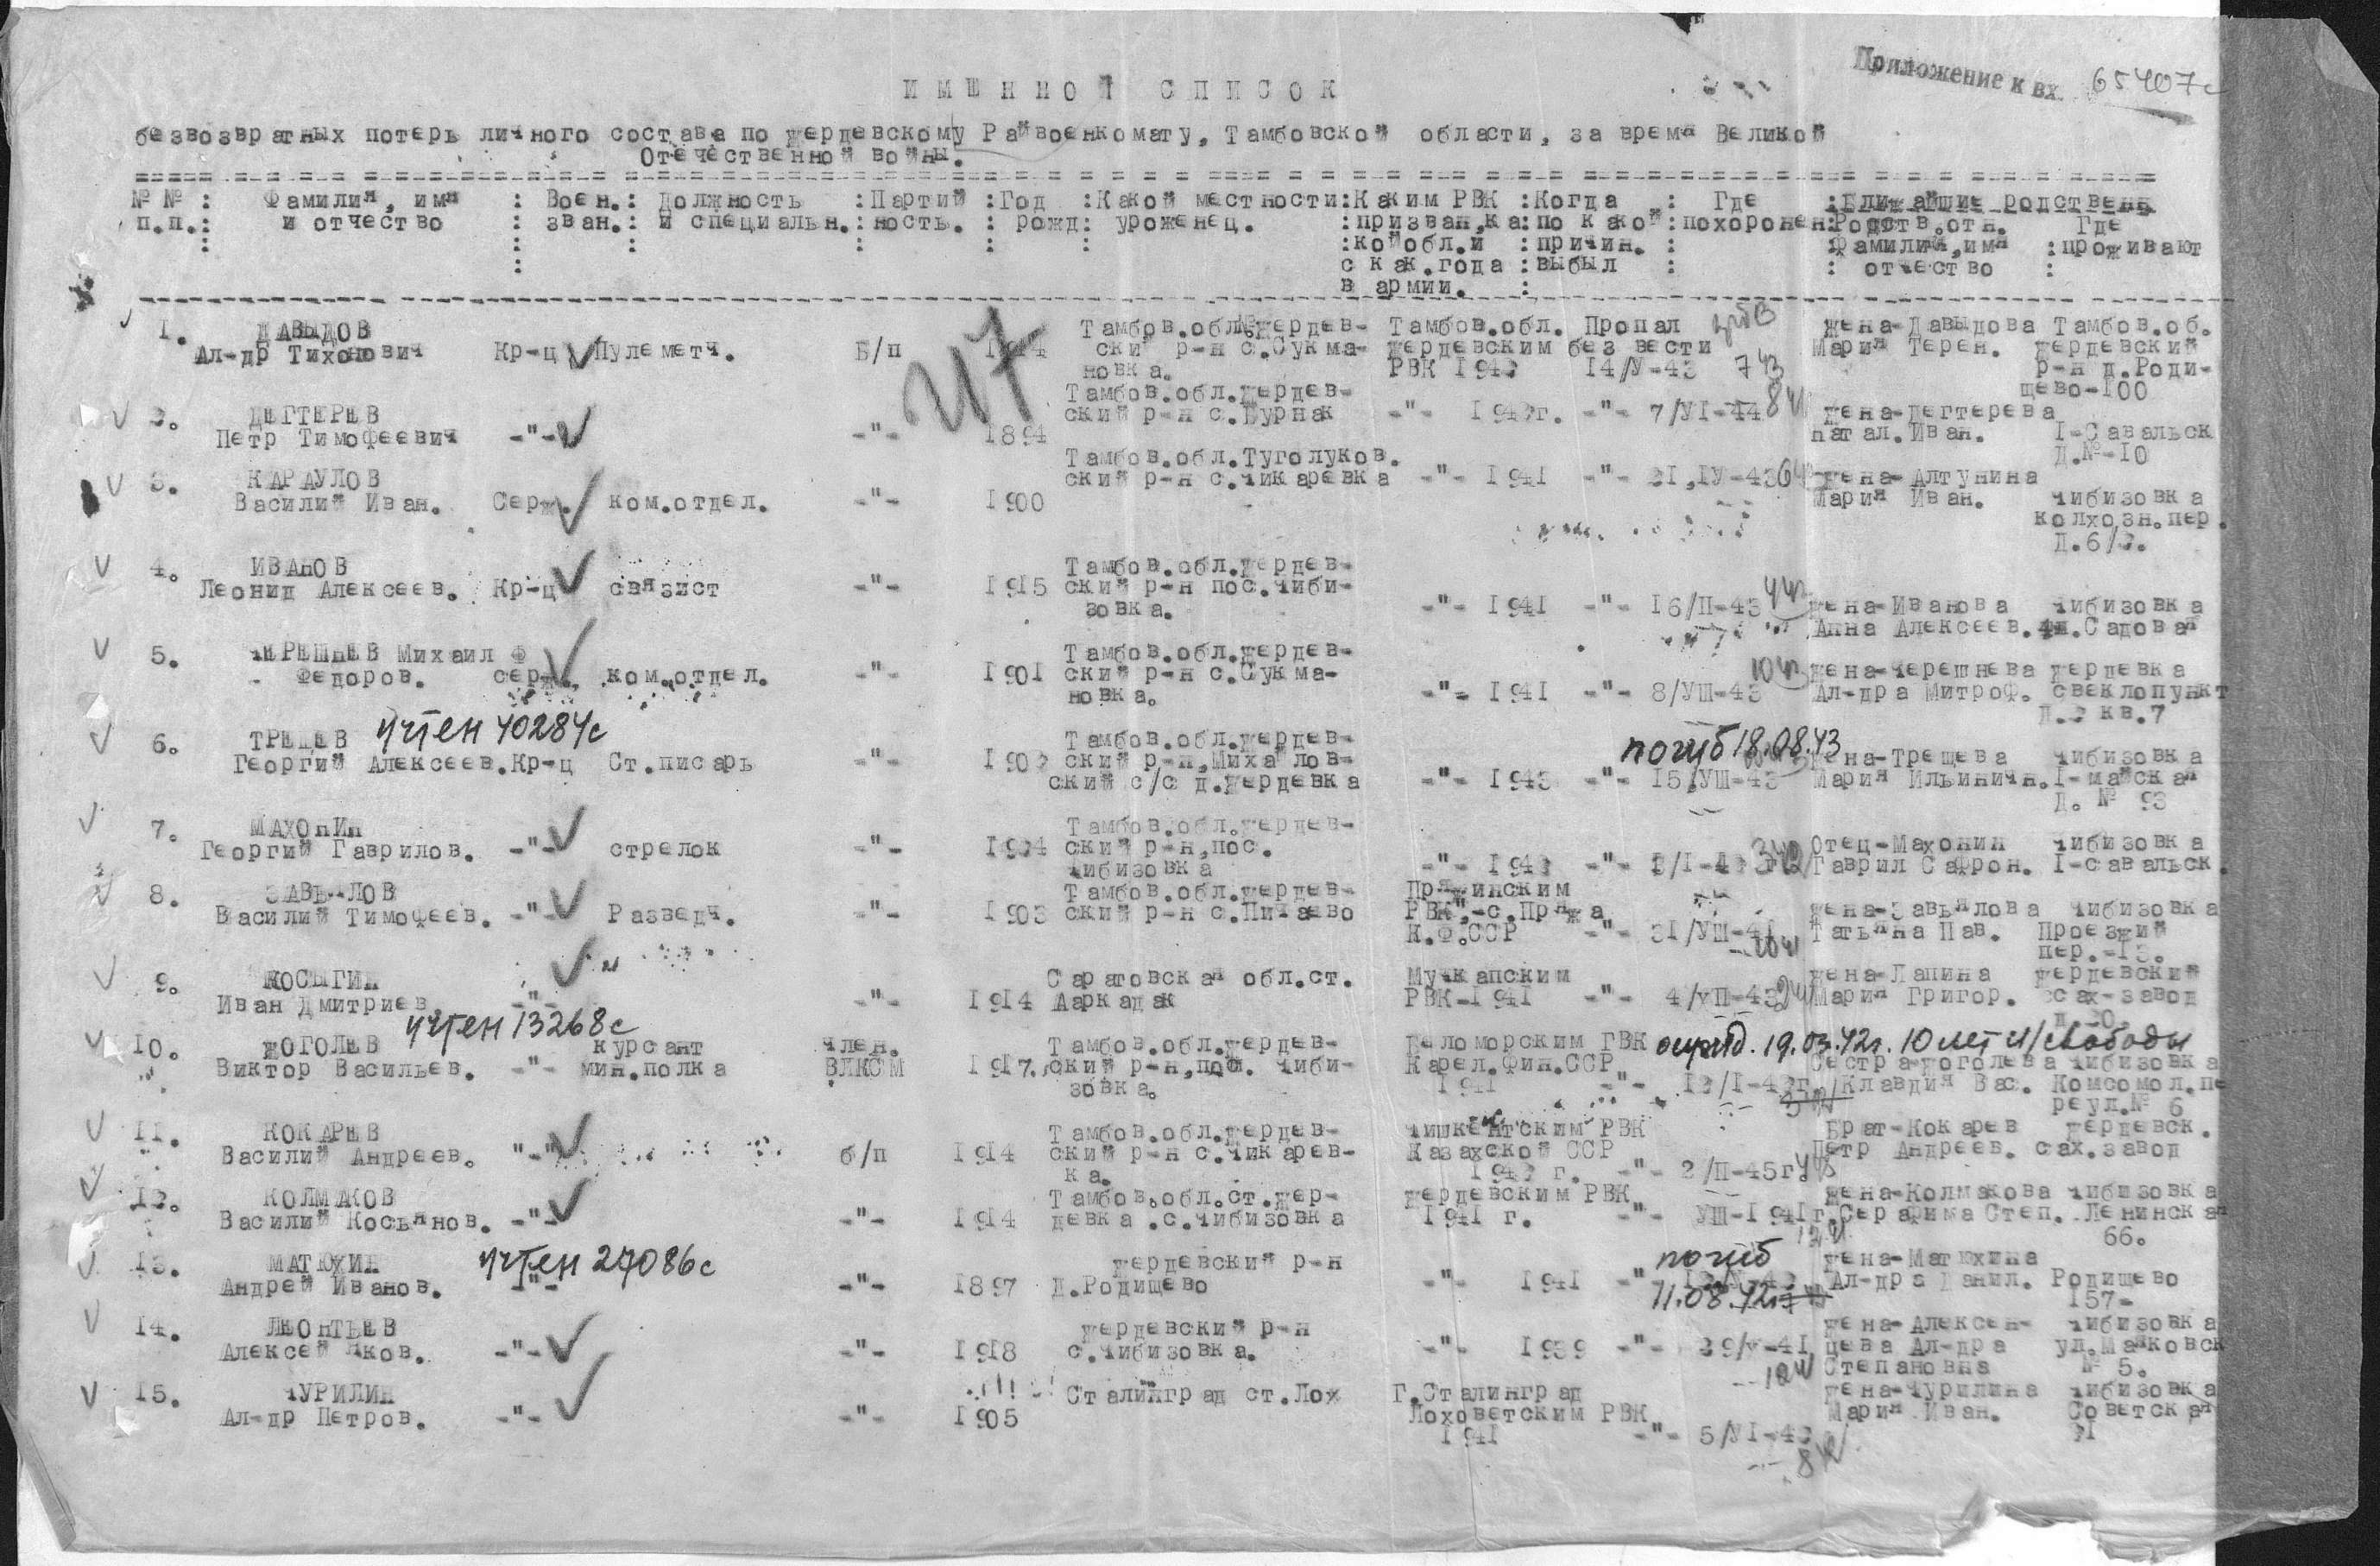 Приложение к вх. 65407с
ИМЕННОЙ СПИСОК
безвозвратных потерь личного состава по Жердевскому Райвоенкомату, Тамбовской области, за время Великой
Отечественной войны.
№ № : Фамилия, имя : Воен. : Должность : Партий : Год : Какой местности : Каким РВК : Когда : Где : Ближайшие родствен
п.п. : и отчество : зван. : и специальн. : ность. : рожд : уроженец. : призван, ка : по какой : похоронен : Родств. отн. Где
: кой обл. и : причин. : Фамилия, имя : проживают
с как. года : выбыл : отчество :
в армии. :
247
1. ДАВЫДОВ Тамбов.обл. Жердев- Тамбов.обл. Пропал жена-Давыдова Тамбов.об.
Ал-др Тихонович Кр-ц Пулеметч. Б/п ский р-н с.Сукма- Жердевским без вести Мария Терен. Жердевский
новка. РВК 1942 14/У-43 7 43 р-н д.Роди-
щево-100
2. ДЕГТЕРЕВ Тамбов.обл.Жердев-
Петр Тимофеевич -"- -"- 1894 ский р-н с.Бурнак -"- 1942г. -"- 7/УІ-44 жена-Дегтерева
Натал.Иван. І-Савальск
д.№-10
3. КАРАУЛОВ Тамбов.обл.Туголуков.
Василий Иван. Серж. ком.отдел. -"- 1900 ский р-н с.Чикаревка -"- 1941 -"- 21,ІУ-43 жена-Алтунина
Мария Иван. Чибизовка
колхозн.пер.
д.6/2.
4. ИВАНОВ Тамбов.обл.Жердев-
Леонид Алексеев. Кр-ц связист -"- 1915 ский р-н пос.Чиби-
зовка. -"- 1941 -"- 16/ІІ-43 жена-Иванова Чибизовка
Анна Алексеев. ул.Садовая
5. ЧЕРЕШНЕВ Михаил Ф Тамбов.обл.Жердев-
Федоров. серж. ком.отдел. -"- 1901 ский р-н с.Сукма- жена-Черешнева Жердевка
новка. -"- 1941 -"- 8/УШ-43 Ал-дра Митроф. свеклопункт
д.2 кв.7
учтен 40284с
6. ТРЕЩЕВ Тамбов.обл.Жердев- погиб 18.08.43
Георгий Алексеев. Кр-ц Ст.писарь -"- 1902 ский р-н, Михайлов- жена-Трещева Чибизовка
ский с/с д.Жердевка -"- 1943 -"- 15/УШ-43 Мария Ильиничн. І-майская
д. № 93
7. МАХОНИН Тамбов.обл.Жердев-
Георгий Гаврилов. -"- стрелок -"- 1924 ский р-н, пос. Отец-Махонин Чибизовка
Чибизовка -"- 1942 -"- Гаврил Сафрон. І-савальск.
8. ЗАВЬЯЛОВ Тамбов.обл.Жердев- Пряжинским
Василий Тимофеев. -"- Разведч. -"- 1903 ский р-н с.Пичаево РВК,-с.Пряжа жена-Завьялова Чибизовка
К.Ф.ССР -"- 31/УШ-41 Татьяна Пав. Проезжий
пер.-13.
9. КОСЫГИН Саратовская обл.ст. Мучкапским жена-Лапина Жердевский
Иван Дмитриев. -"- -"- 1914 Ааркадак РВК-1941 -"- 4/УП-43 Мария Григор. сах-завод
учтен 13268с
10. ЖОГОЛЕВ курсант член. Тамбов.обл.Жердев- Беломорским ГВК осужд. 19.03.42г. 10 лет л/свободы
Виктор Васильев. -"- мин.полка ВЛКСМ 1917. ский р-н, пос. Чиби- Карел.Фин.ССР Сестра-Жоголева Чибизовка
зовка. 1941 -"- 12/І-42г. Клавдия Вас. Комсомол.пе
реул.№ 6
11. КОКАРЕВ Тамбов.обл.Жердев- Чишкентским РВК Брат-Кокарев Жердевск.
Василий Андреев. -"- б/п 1914 ский р-н с.Чикарев- Казахской ССР Петр Андреев. сах.завод
ка. 1942 г. -"- 2/П-45г.
12. КОЛМАКОВ Тамбов.обл.ст.Жер- Жердевским РВК жена-Колмакова Чибизовка
Василий Косьянов. -"- -"- 1914 девка.с.Чибизовка 1941 г. -"- УШ-1941г. Серафима Степ. Ленинская
66.
13. МАТЮХИН учтен 27086с Жердевский р-н погиб жена-Матюхина
Андрей Иванов. -"- -"- 1897 д.Родищево -"- 1941 -"- Ал-дра Данил. Родищево
11.08.42г. 157-
14. ЛЕОНТЬЕВ Жердевский р-н жена-Алексен- Чибизовка
Алексей Яков. -"- -"- 1918 с.Чибизовка. -"- 1939 -"- 29/У-41 цева Ал-дра ул.Маяковск
Степановна № 5.
15. ЧУРИЛИН Сталинград ст.Лох Г.Сталинград жена-Чурилина Чибизовка
Ал-др Петров. -"- -"- 1905 Лоховетским РВК Мария Иван. Советская
1941 -"- 5/УІ-42 21